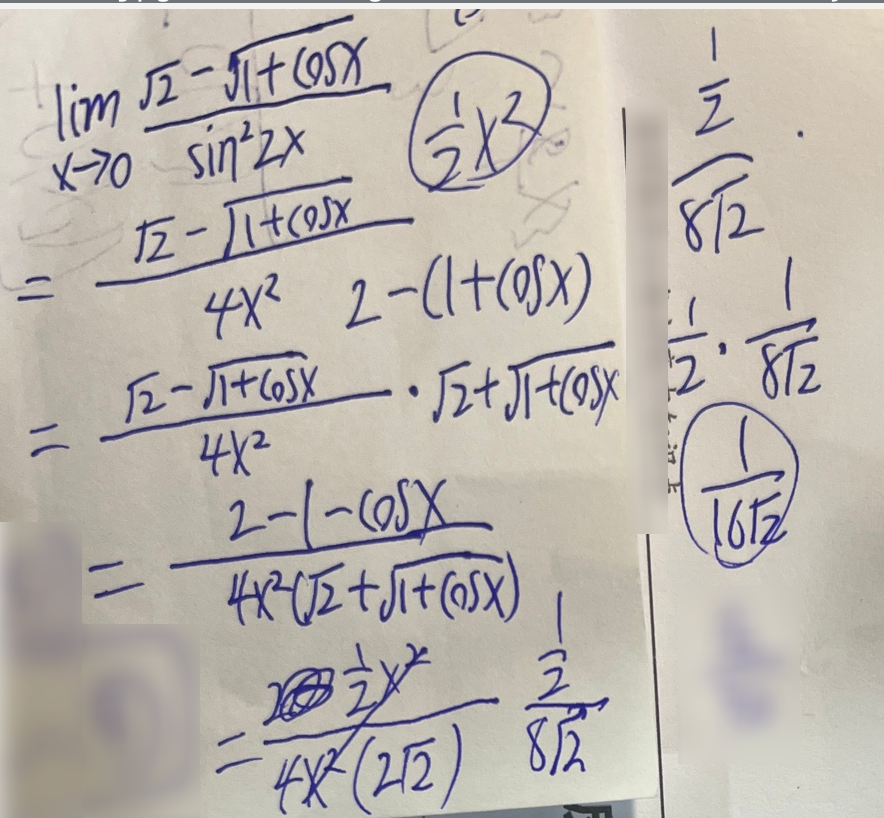 lim x→0 (√2 - √(1+cosx)) / (sin²2x)
½x²
= (√2 - √(1+cosx)) / (4x²)
2-(1+cosx)
= (√2 - √(1+cosx)) / (4x²) · √2 + √(1+cosx)
= (2-1-cosx) / (4x²(√2 + √(1+cosx)))
= (½x²) / (4x²(2√2))
½ / (8√2)
½ / (8√2)
1/2 · 1/(8√2)
1/(16√2)